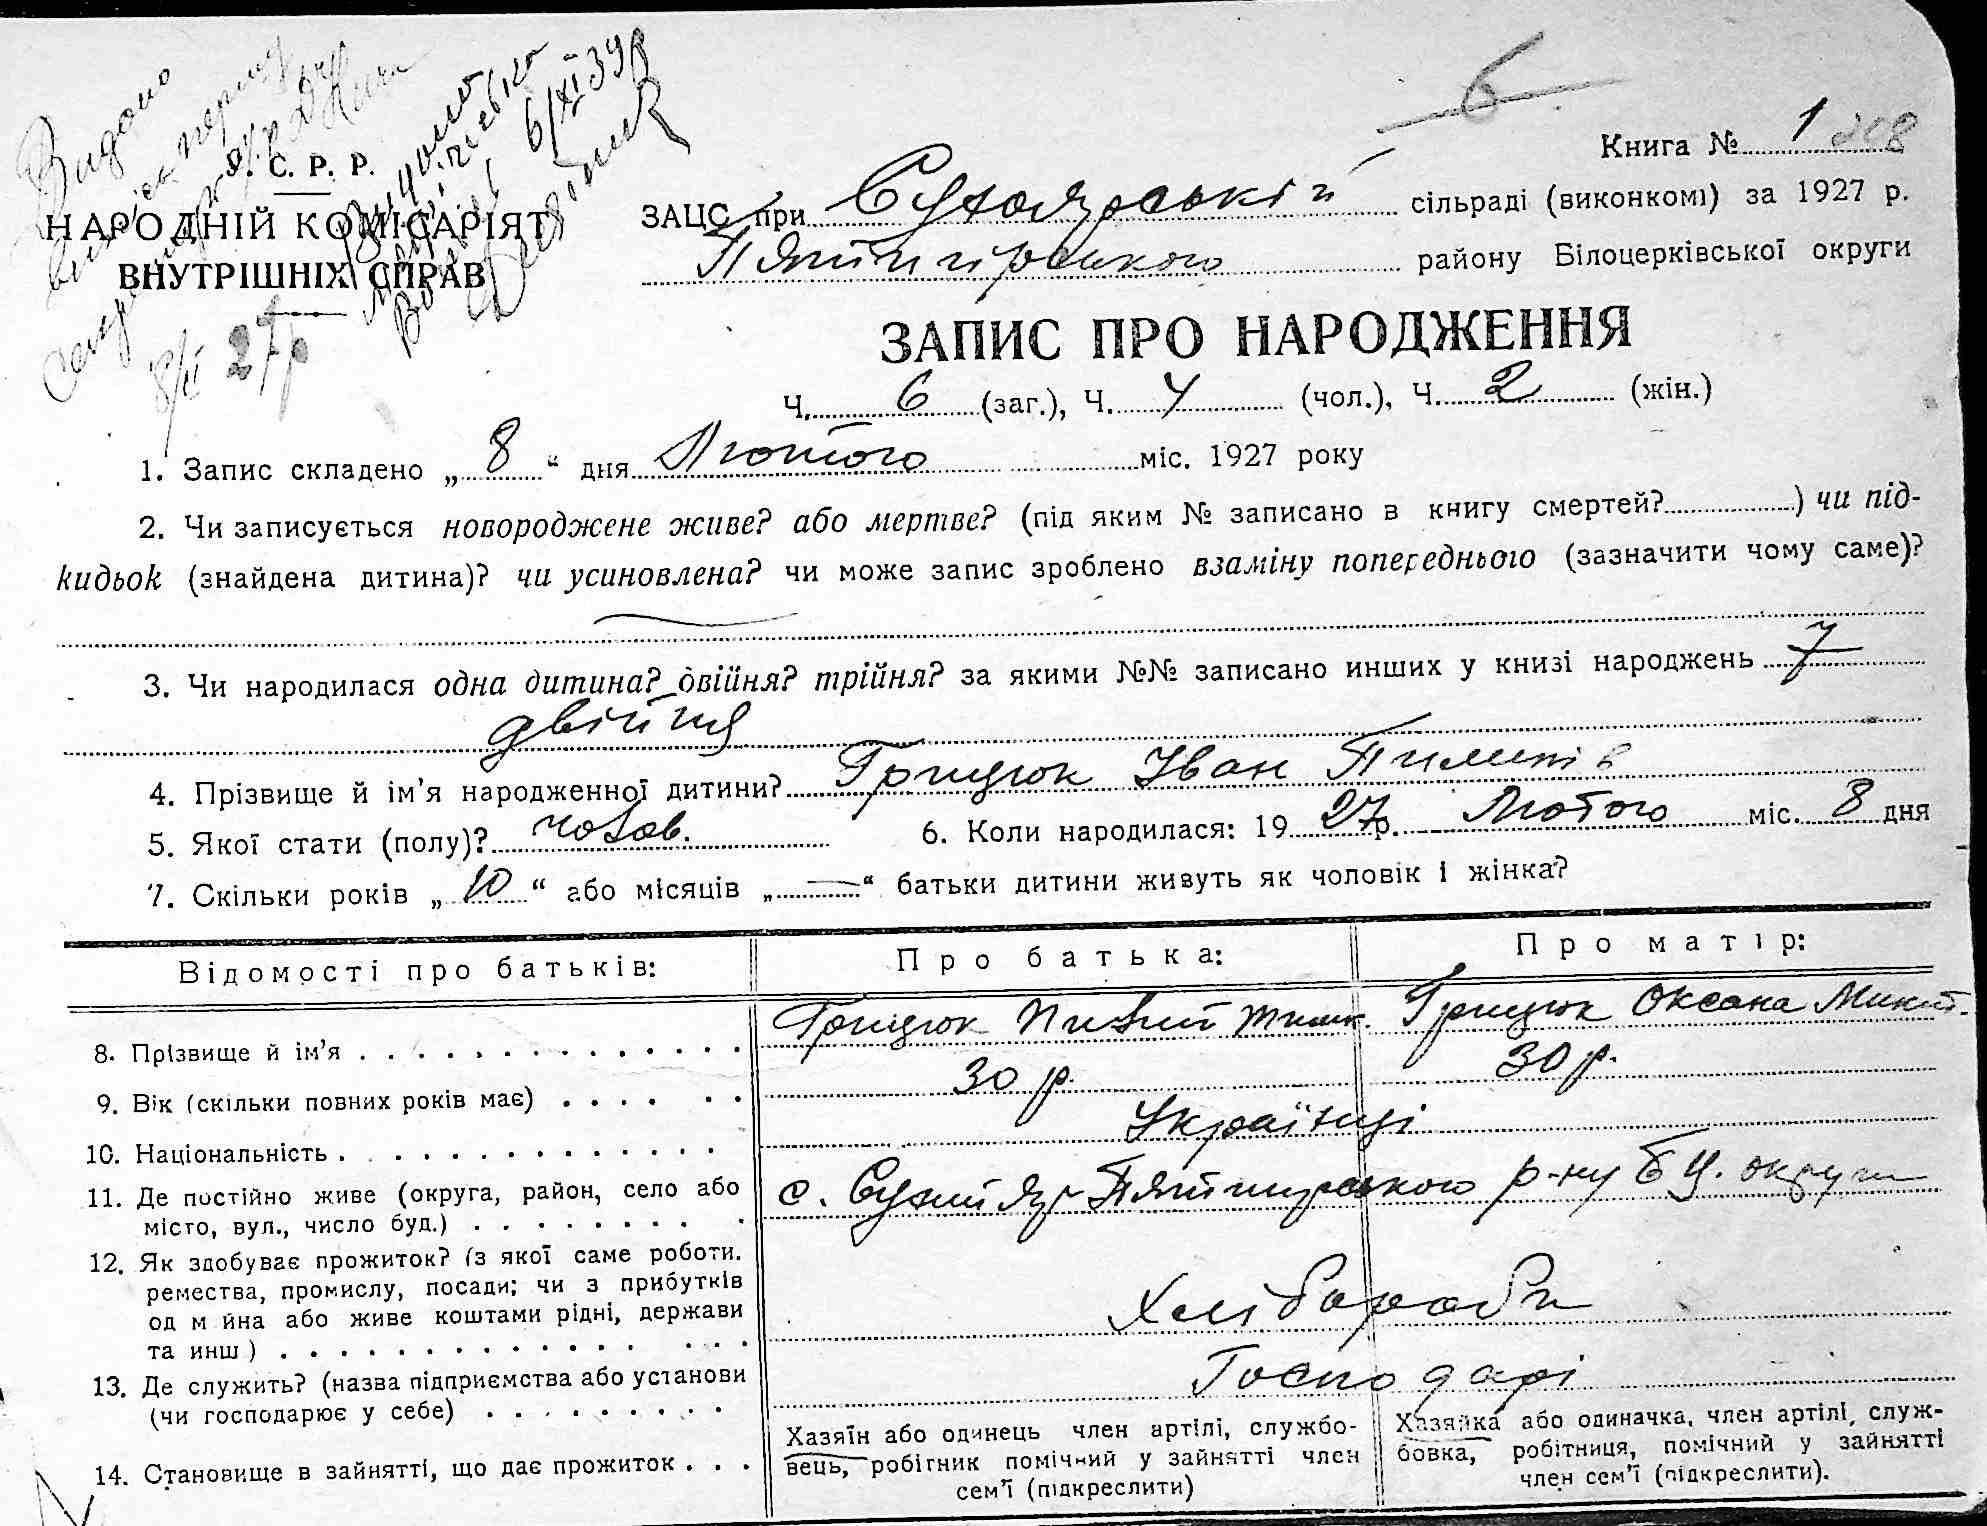 Видано
6/XI 39 р
6
Книга № 1 208
У. С. Р. Р.
НАРОДНІЙ КОМІСАРІЯТ
ВНУТРІШНІХ СПРАВ
8/II 27 р
ЗАЦС при Сухоярській сільраді (виконкомі) за 1927 р.
Пятигірського району Білоцерківської округи
ЗАПИС ПРО НАРОДЖЕННЯ
Ч. 6 (заг.), Ч. 4 (чол.), Ч. 2 (жін.)
1. Запис складено „ 8 “ дня Лютого міс. 1927 року
2. Чи записується новороджене живе? або мертве? (під яким № записано в книгу смертей? ) чи під-
кидьок (знайдена дитина)? чи усиновлена? чи може запис зроблено взаміну попереднього (зазначити чому саме)?
3. Чи народилася одна дитина? двійня? трійня? за якими №№ записано инших у книзі народжень 7
двійня
4. Прізвище й ім’я народженної дитини? Грицюк Іван Пилипів
5. Якої стати (полу)? чолов. 6. Коли народилася: 19 27 р. Лютого міс. 8 дня
7. Скільки років „ 10 “ або місяців „ — “ батьки дитини живуть як чоловік і жінка?
Відомості про батьків: Про батька: Про матір:
8. Прізвище й ім’я Грицюк Пилип Грицюк Оксана Микит.
9. Вік (скільки повних років має) 30 р. 30 р.
10. Національність Українці
11. Де постійно живе (округа, район, село або
місто, вул., число буд.) с. Сухий Яр Пятигирського р-ну Б Ц. округи
12. Як здобуває прожиток? (з якої саме роботи.
ремества, промислу, посади; чи з прибутків
од м йна або живе коштами рідні, держави
та инш) Хлібороби
13. Де служить? (назва підприємства або установи
(чи господарює у себе) Господарі
14. Становище в зайнятті, що дає прожиток
Хазяїн або одинець член артілі, службо-
вець, робігник помічний у зайнятті член
сем’ї (підкреслити)
Хазяйка або одиначка, член артілі, служ-
бовка, робітниця, помічний у зайнятті
член сем’ї (підкреслити).